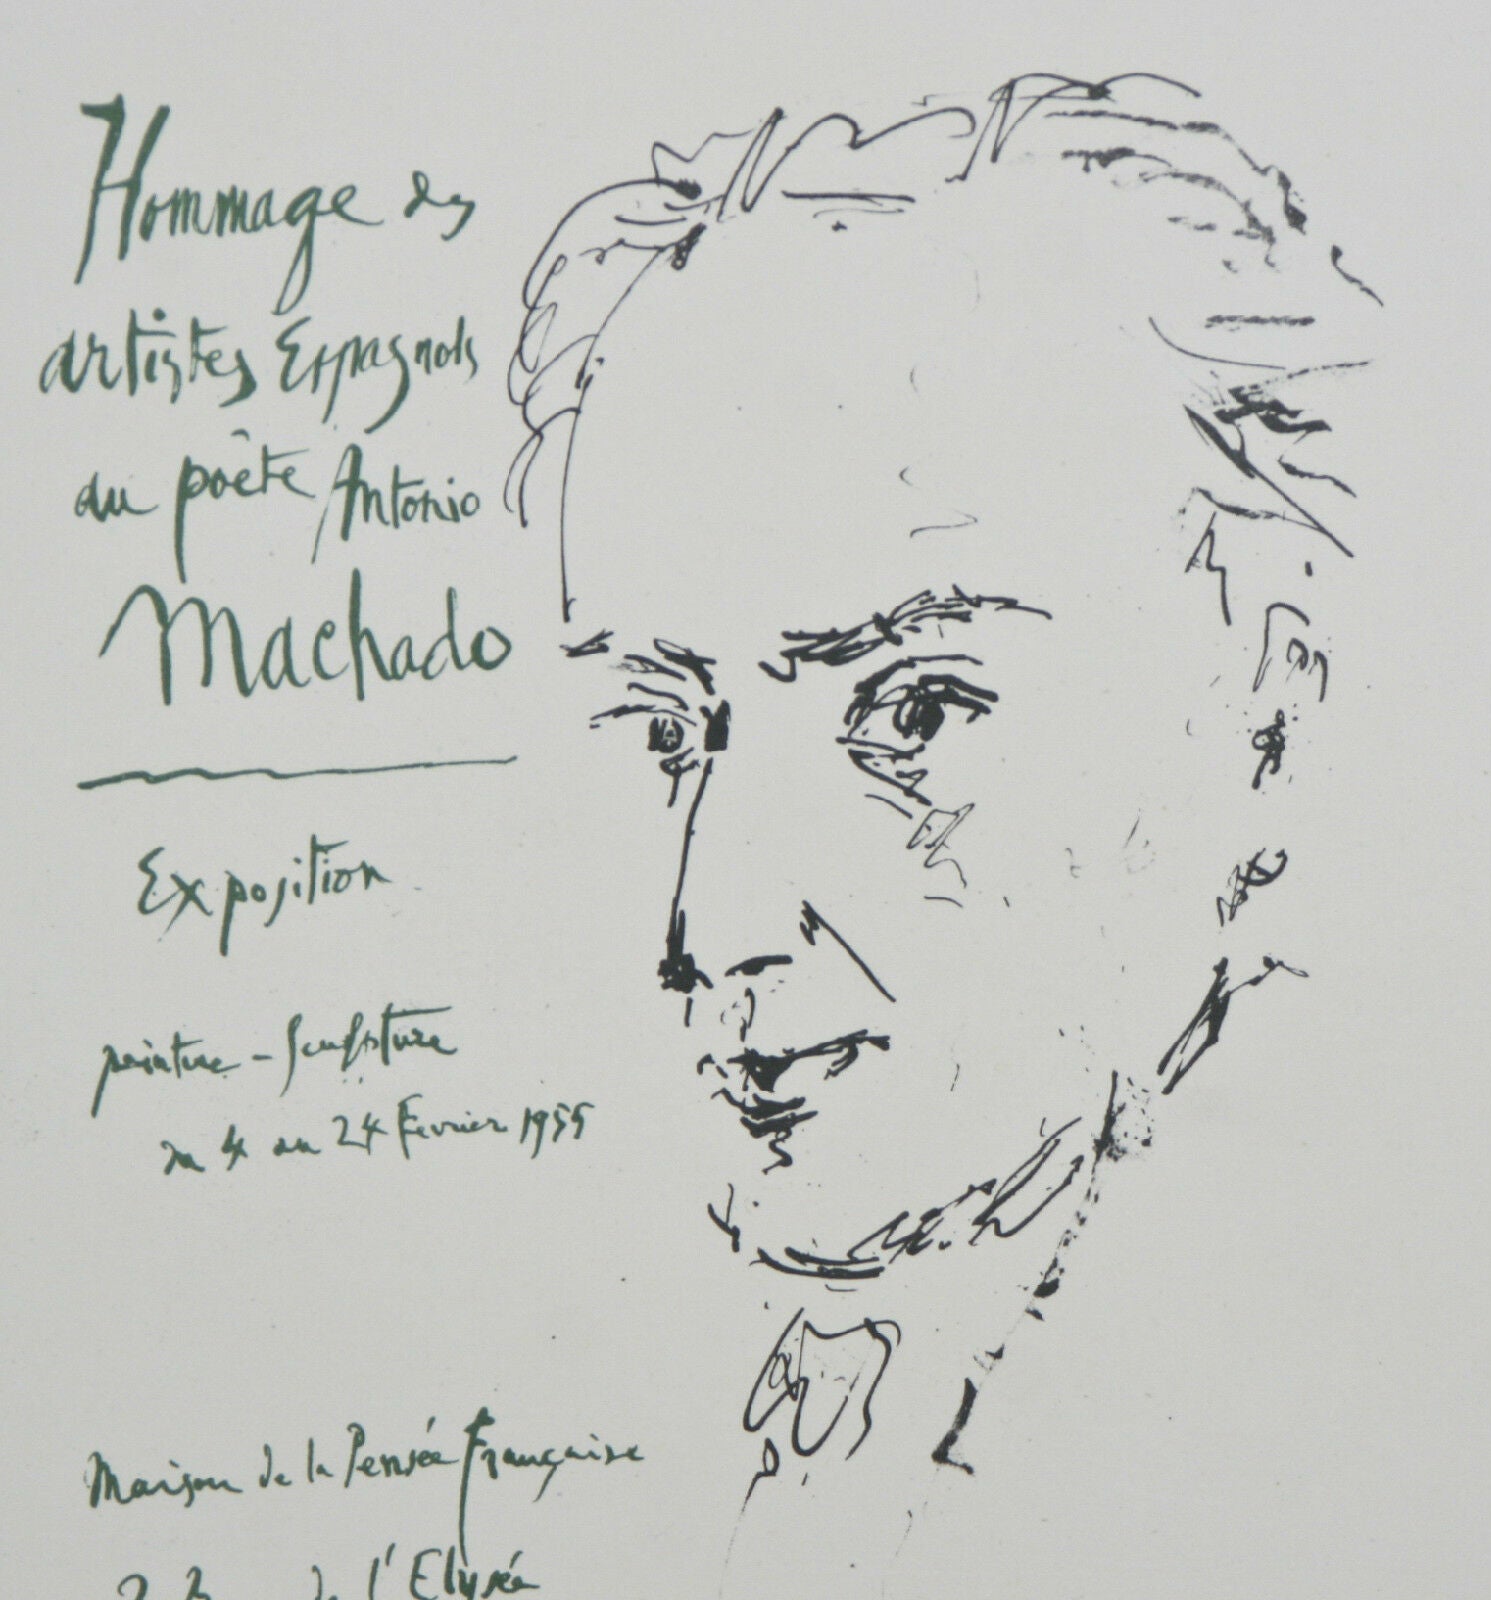 Hommage des
artistes Espagnols
du poète Antonio
Machado
Exposition
peinture - sculpture
du 4 au 24 Fevrier 1955
Maison de la Pensée Française
2 de l'Elysée